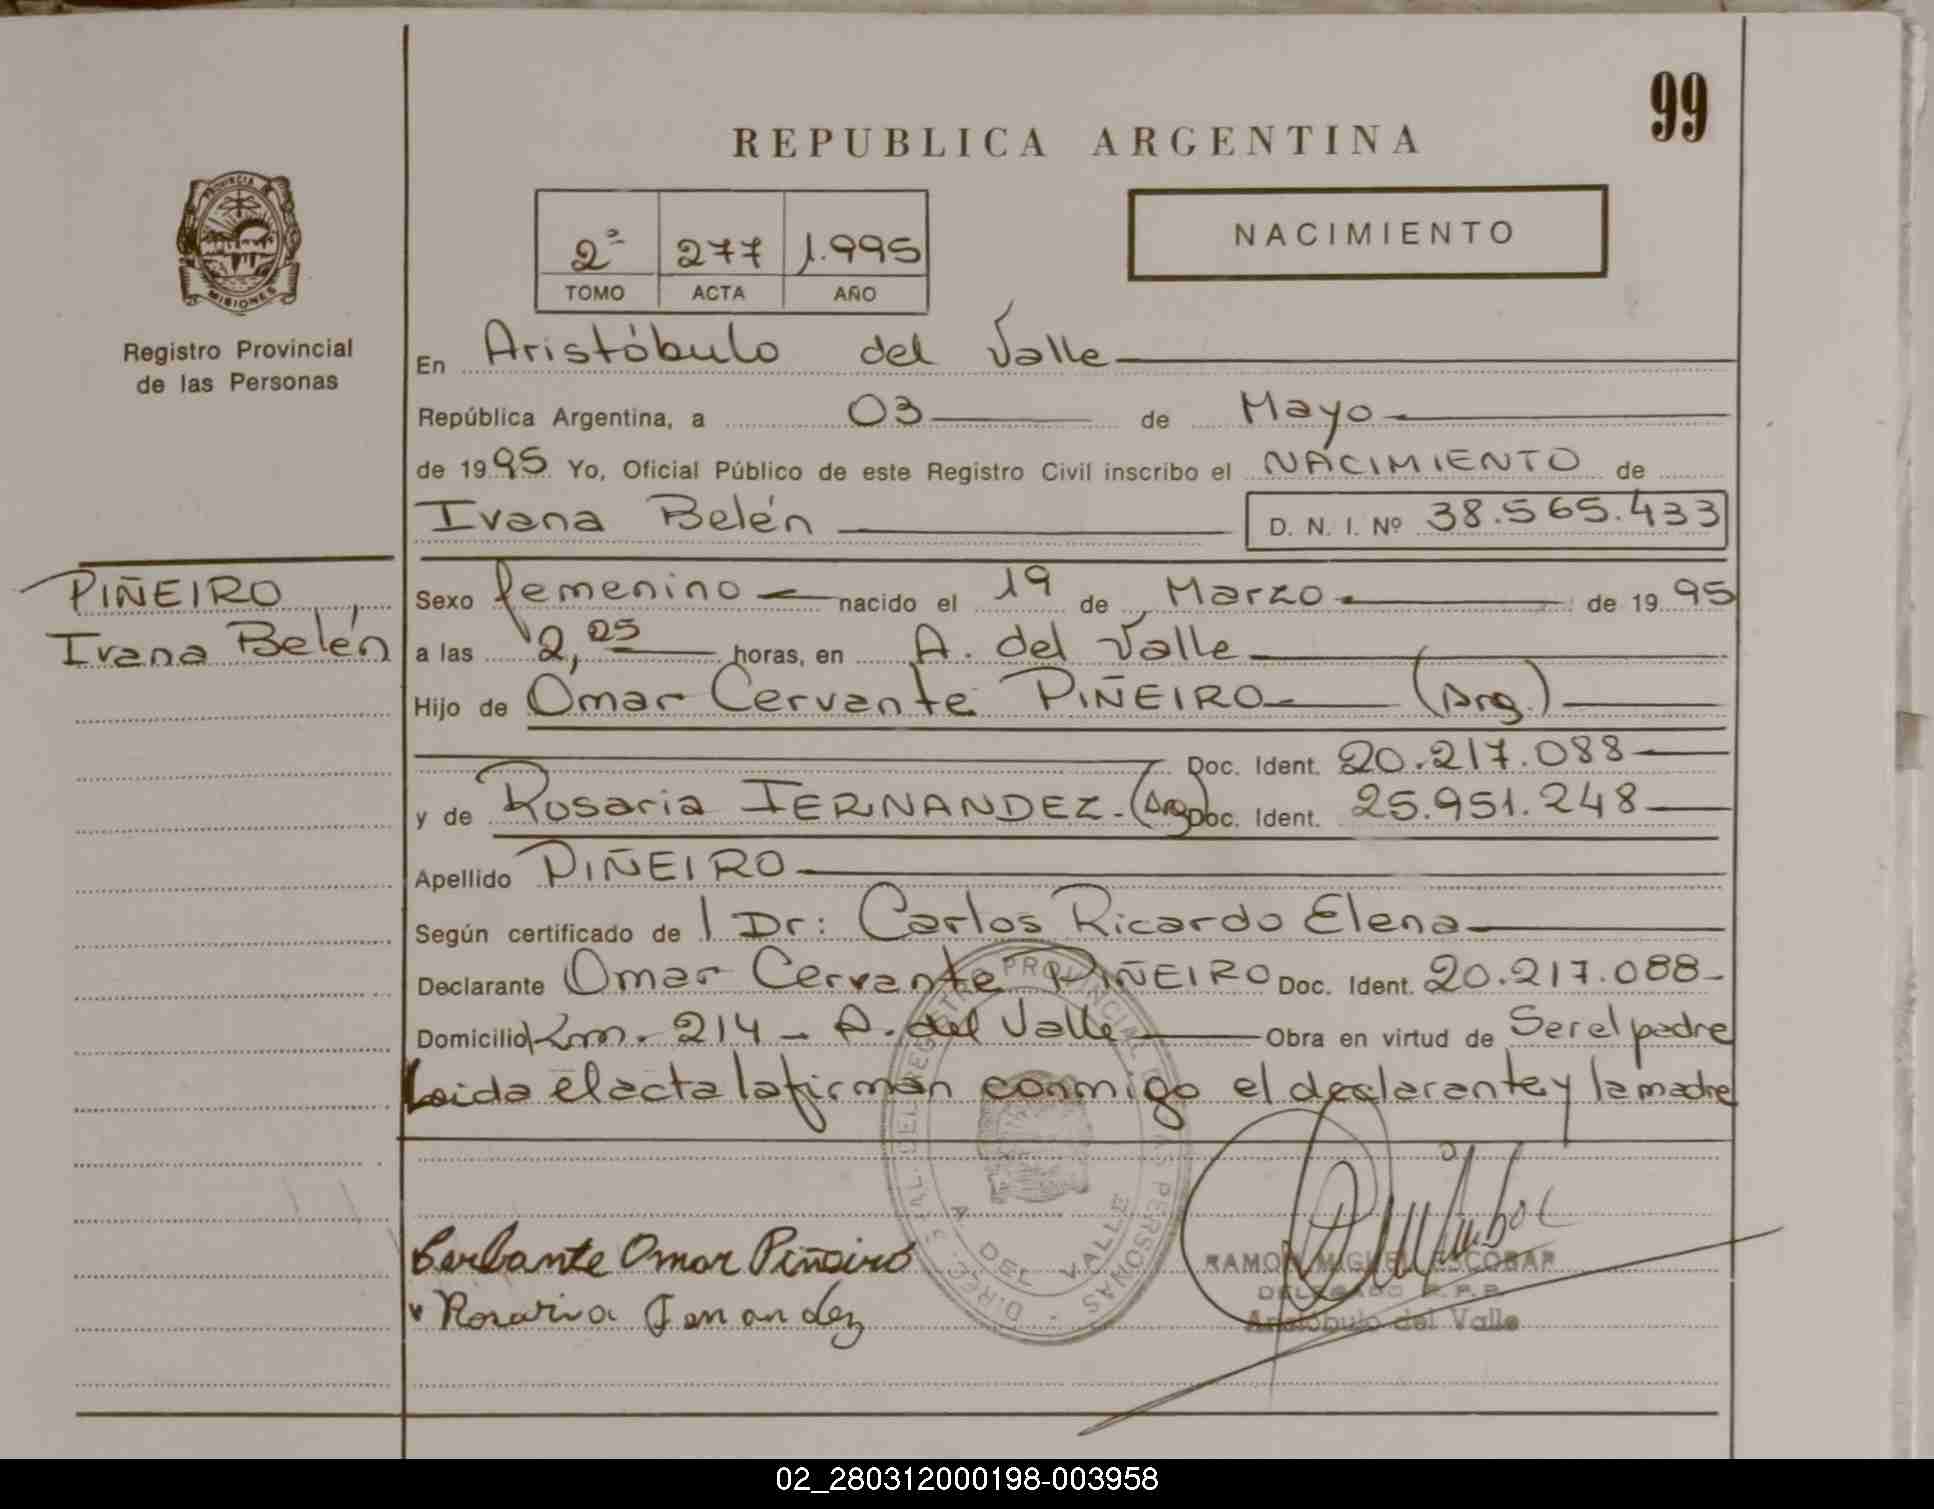 99
REPUBLICA ARGENTINA
PROVINCIA DE
MISIONES
Registro Provincial
de las Personas
2º 277 1.995
TOMO ACTA AÑO
NACIMIENTO
En Aristóbulo del Valle
República Argentina, a 03 de Mayo
de 1995 Yo, Oficial Público de este Registro Civil inscribo el NACIMIENTO de
Ivana Belén D. N. I. Nº 38.565.433
PIÑEIRO
Ivana Belén
Sexo femenino nacido el 19 de Marzo de 1995
a las 2,25 horas, en A. del Valle
Hijo de Omar Cervante PIÑEIRO (Arg.)
Doc. Ident. 20.217.088
y de Rosaria FERNANDEZ.(Arg) Doc. Ident. 25.951.248
Apellido PIÑEIRO
Según certificado de l Dr: Carlos Ricardo Elena
Declarante Omar Cervante PIÑEIRO Doc. Ident. 20.217.088
Domicilio Km. 214 - A. del Valle Obra en virtud de Ser el padre
Leida el acta la firman conmigo el declarante y la madre
DIREC. GRAL. DEL REGISTRO PROVINCIAL DE LAS PERSONAS
A. DEL VALLE
Cerbante Omar Piñeiro
Rosaria Fernandez
RAMON MIGUEL ESCOBAR
DELEGADO R.P.P.
Aristóbulo del Valle
02_280312000198-003958